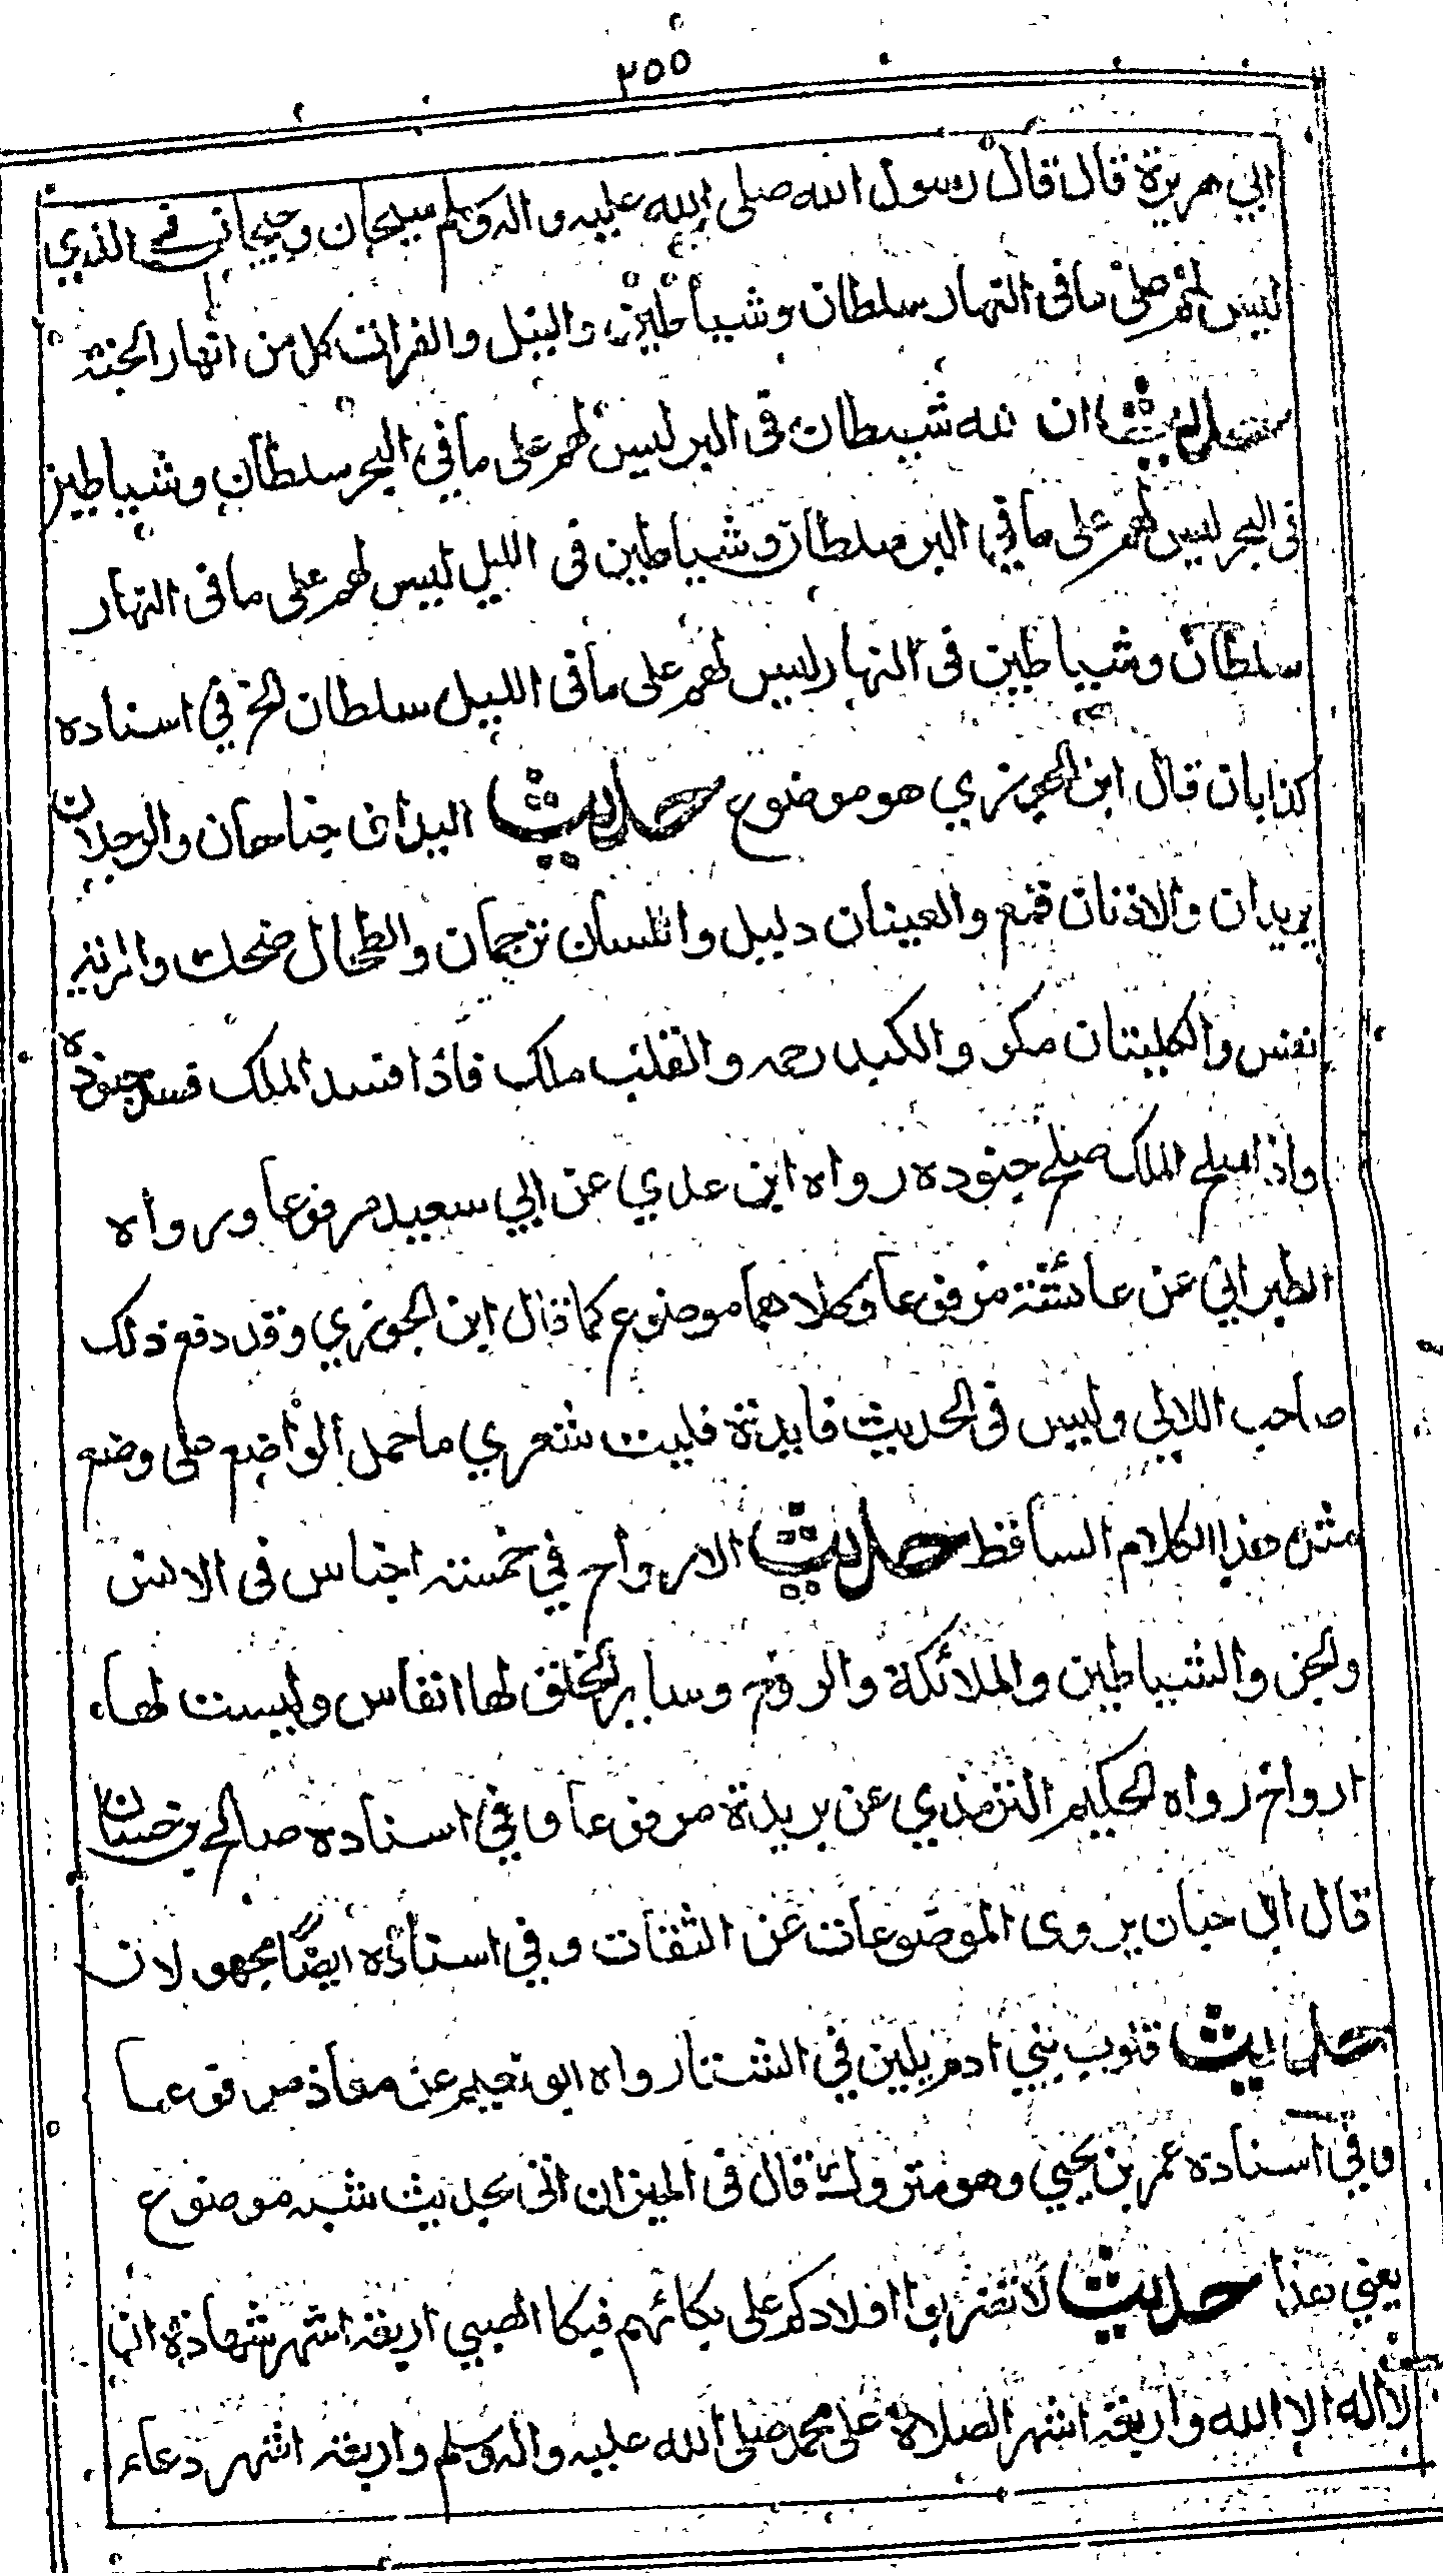 ٢٥٥
ابي هريرة قال قال رسول الله صلى الله عليه واله وسلم سيحان وجيحان الذي
ليس لهم على ما في النهار سلطان وشياطين والنيل والفرات كل من انهار الجنة
حديث ان لله شيطان في البر ليس لهم على ما في البحر سلطان وشياطين
في البحر ليس لهم على ما في البر سلطان وشياطين في الليل ليس لهم على ما في النهار
سلطان وشياطين في النهار ليس لهم على ما في الليل سلطان الخ في اسناده
كذابان قال ابن الجوزي هو موضوع حديث اليدان جناحان والرجلان
بريدان والاذنان قمع والعينان دليل واللسان ترجمان والطحال ضحك والرئة
نفس والكليتان مكر والكبد رحمه والقلب ملك فاذا فسد الملك فسد جنوده
واذا صلح الملك صلح جنوده رواه ابن عدي عن ابي سعيد مرفوعا ورواه
الطبراني عن عائشة مرفوعا وكلاهما موضوع كما قال ابن الجوزي وقد دفع ذلك
صاحب اللالي وليس في الحديث فايدة فليت شعري ما حمل الواضع على وضع
مثل هذا الكلام الساقط حديث الارواح في خمسة اجناس في الانس
والجن والشياطين والملائكة والروح وساير الخلق لها انفاس وليست لها
ارواح رواه الحكيم الترمذي عن بريدة مرفوعا وفي اسناده صالح بن حسان
قال ابن حبان يروى الموضوعات عن الثقات وفي اسناده ايضا مجهولان
حديث قلوب بني ادم يلين في الشتا رواه ابو نعيم عن معاذ مرفوعا
وفي اسناده عمر بن يحيي وهو متروك قال في الميزان اتى بحديث شبه موضوع
يعني هذا حديث لا تضربوا اولادكم على بكائهم فبكا الصبي اربعة اشهر شهادة ان
لا اله الا الله واربعة اشهر الصلاة على محمد صلى الله عليه واله وسلم واربعة اشهر دعاء